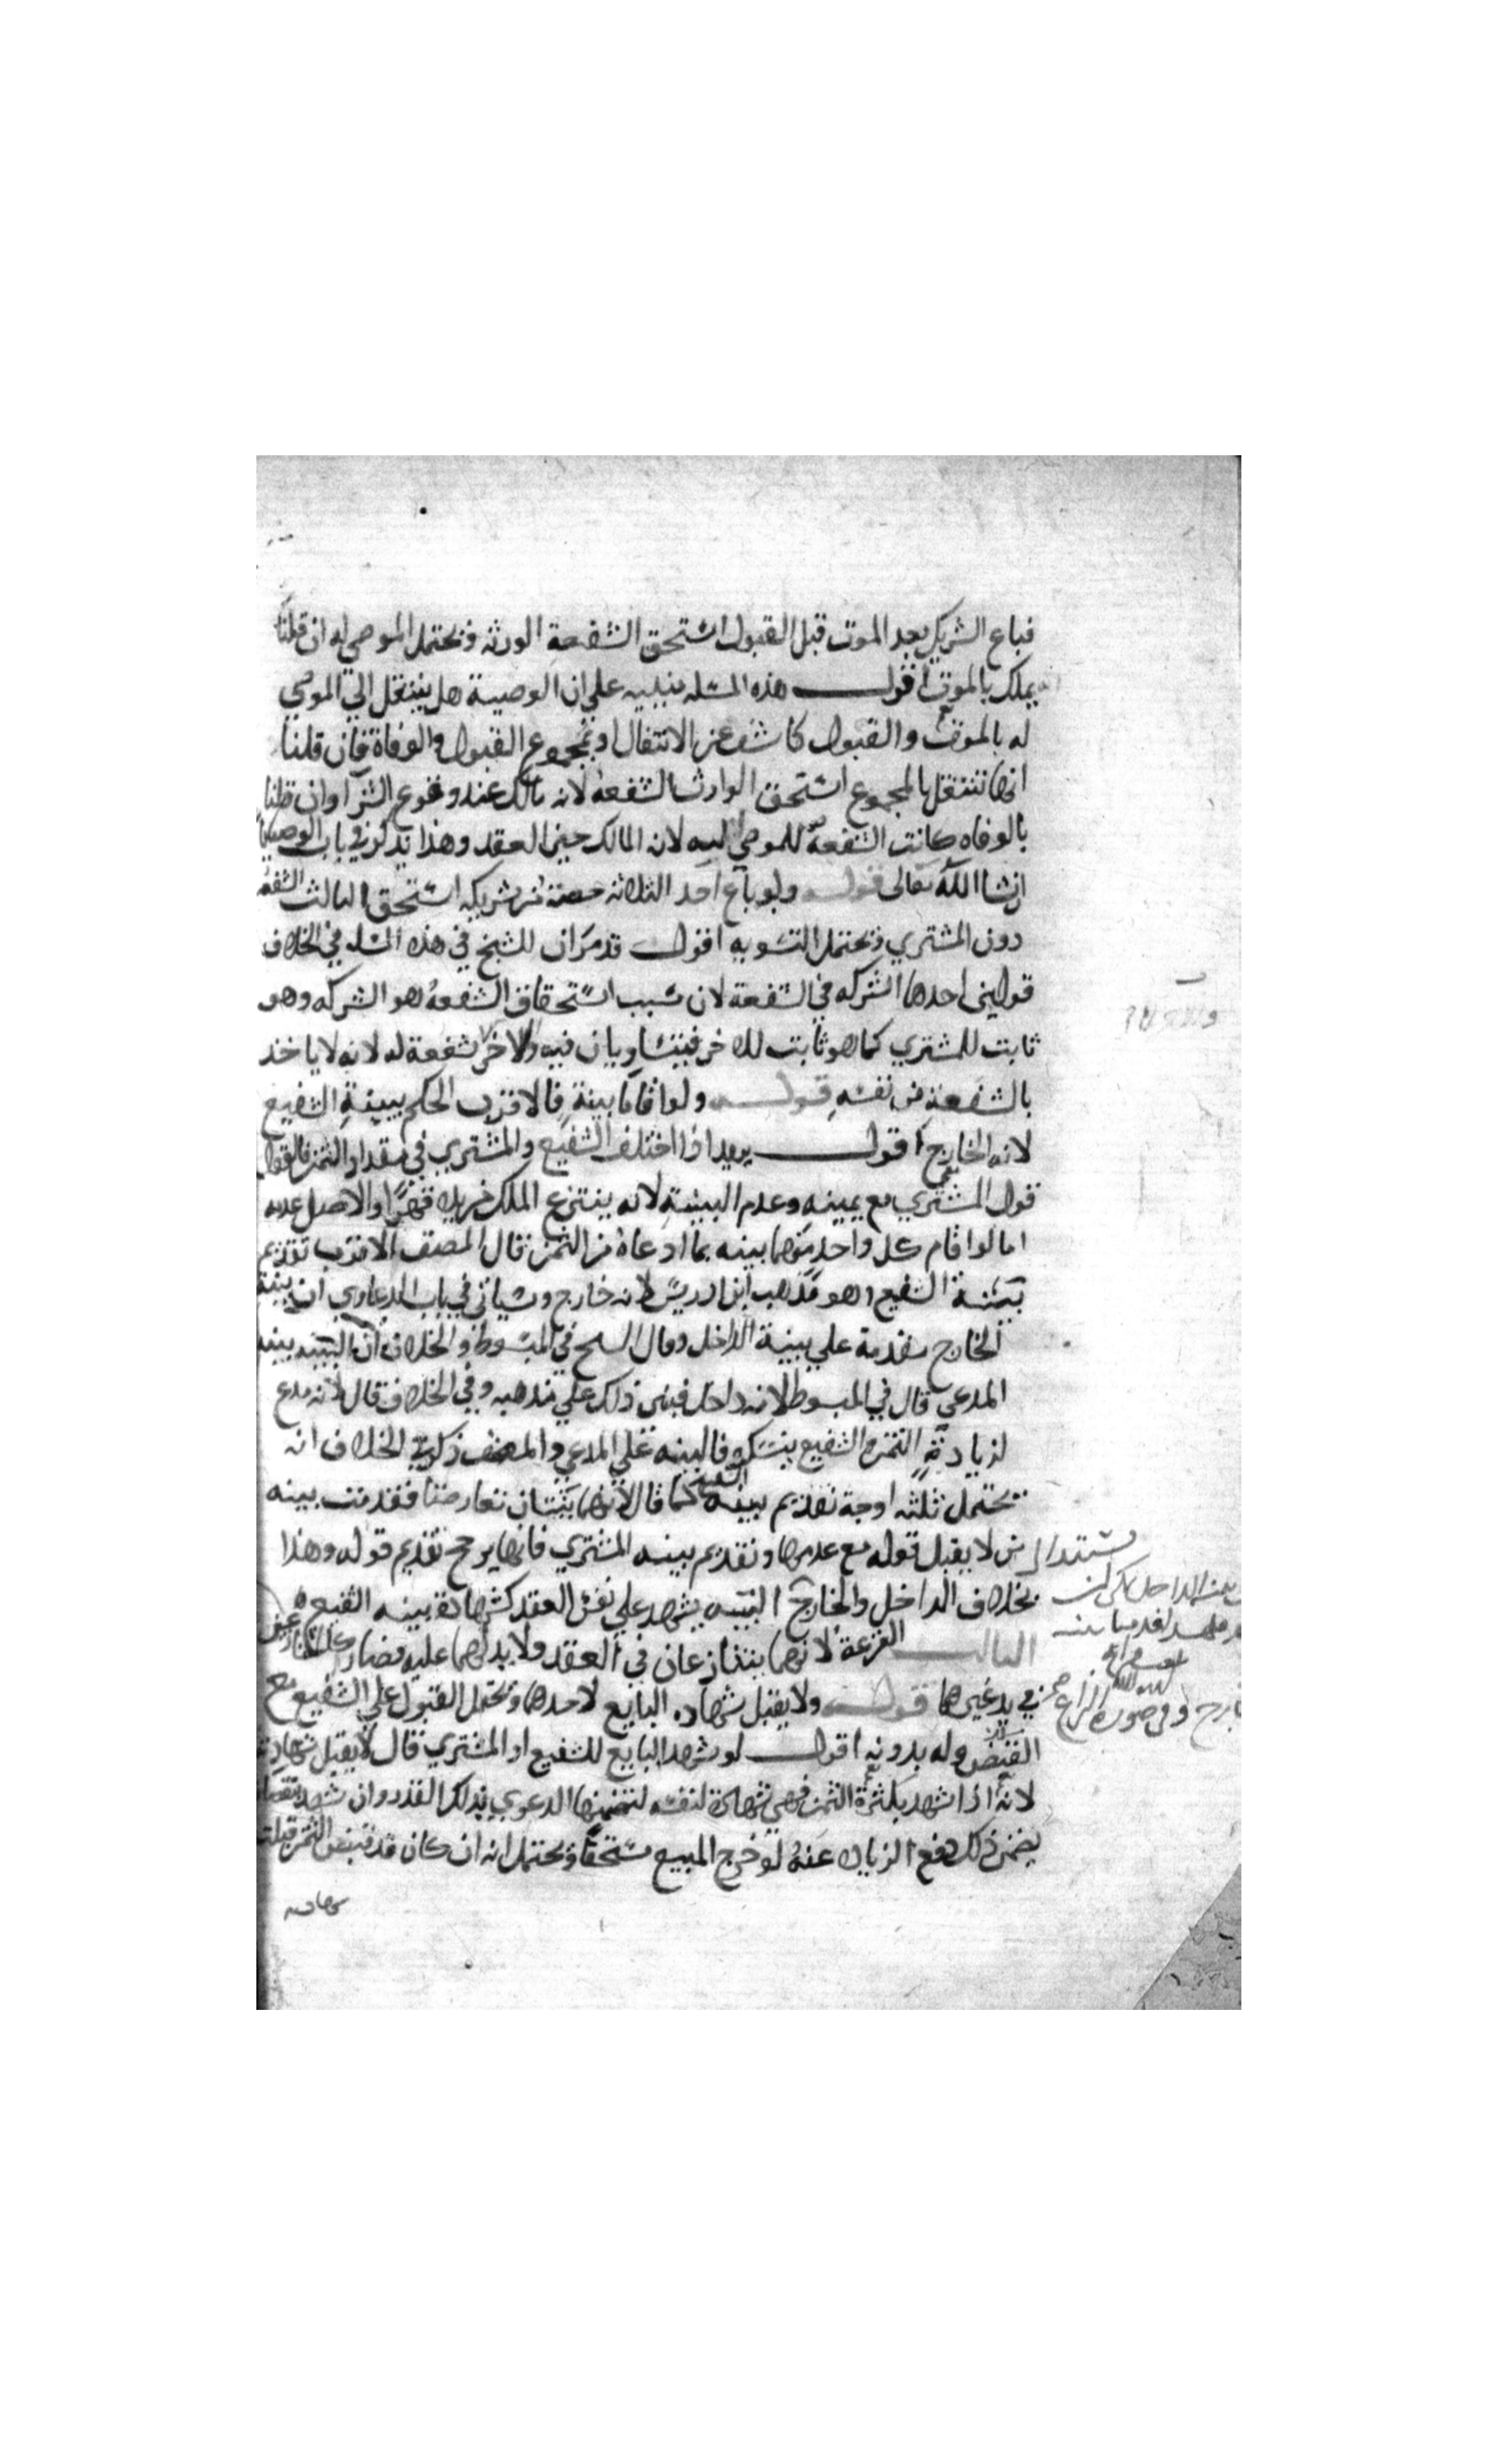 فباع الشريك بعد الموت قبل القبول استحق الشفعة الورثه ويحتمل الموصي له ان قلنا
يملك بالموت اقول هذه المسله مبنيه علي ان الوصية هل ينتقل الي الموصي
له بالموت والقبول كاشف عن الانتقال او بمجموع القبول والوفاة فان قلنا
انها تنتقل بالمجموع استحق الوارث الشفعة لانه مالك عند وقوع الشرا وان قلنا
بالوفاه كانت الشفعة للموصي اليه لانه المالك حين العقد وهذا يذكر في باب الوصيه
انشا الله تعالى قوله ولو باع احد الثلاثه حصته من شريكه استحق الثالث الشفعه
دون المشتري ويحتمل التسويه اقول قد مر ان للشيخ في هذه المسله في الخلاف
قولين احدها الشركه في الشفعة لان سبب استحقاق الشفعة هو الشركه وهو
ثابت للمشتري كما هو ثابت للاخر فيتساويان فيه والاخر لا شفعة له لانه لا ياخذ
بالشفعة من نفسه قوله ولو اقاما بينة فالاقرب الحكم ببينة الشفيع
لانه الخارج اقول يريد اذا اختلف الشفيع والمشتري في مقدار الثمن فالقول
قول المشتري مع يمينه وعدم البينة لانه ينتزع الملك من يده قهرا والاصل عدمه
اما لو اقام كل واحد منهما بينه بما ادعاه من الثمن قال المصنف الاقرب تقديم
بينة الشفيع وهو مذهب ابن ادريس لانه خارج وسياتي في باب الدعاوي ان بينة
الخارج مقدمة علي بينة الداخل وقال الشيخ في المبسوط والخلاف ان البينه بينه
المدعي قال في المبسوط لانه داخل فبني ذلك علي مذهبه وفي الخلاف قال لانه مدع
لزيادة الثمن والشفيع ينكره فالبينه علي المدعي والمصنف ذكر في الخلاف انه
يحتمل ثلثه اوجه تقديم بينه الشفيع كما قال لانهما بينتان تعارضتا فقدمت بينه
من لا يقبل قوله مع عدمها وتقديم بينه المشتري فانها يرجح تقديم قوله وهذا
بخلاف الداخل والخارج البينه يشهد علي نفس العقد كشهادة بينه الشفيع
الثالث القرعة لانهما يتنازعان في العقد ولا يد لهما عليه فصار كالمتنازعين
في يد غيرها قوله ولا يقبل شهاده البايع لاحدها ويحتمل القبول علي الشفيع مع
القبض وله بدونه اقول لو شهد البايع للشفيع او المشتري قال لا يقبل شهادته
لانه اذا شهد بكثرة الثمن فهي شهادة لنفسه لتضمنها الدعوي بذلك القدر وان شهد بنقصانه
يضمن ذلك دفع الزياده عنه لو خرج المبيع مستحقا ويحتمل انه ان كان قد قبض الثمن قبلت
شهادته